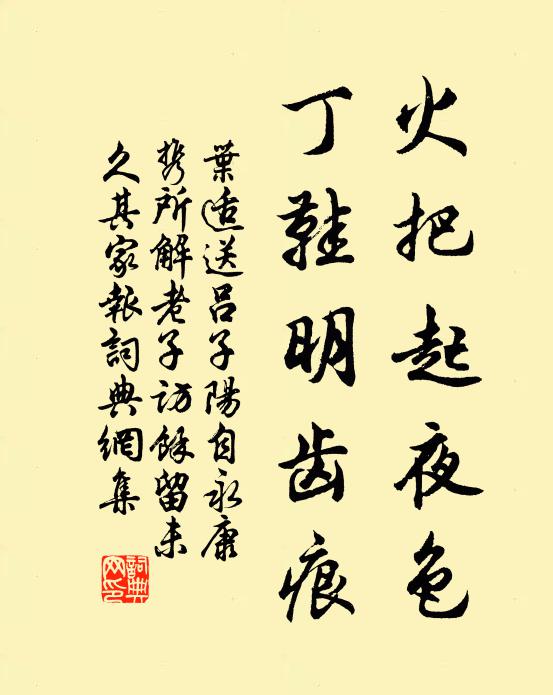 火把起夜色
丁鞋明齿痕
葉适送呂子陽自永康
携所解老子訪餘留未
久其家報詞典網集
詞典
网印